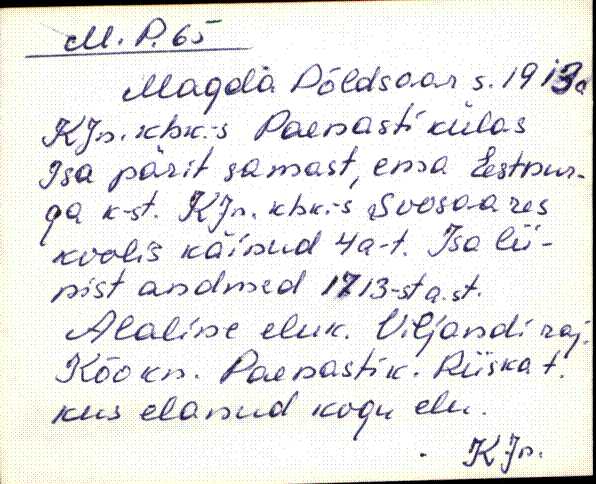 M. P. 65
Magda Põldsaar s. 1913a
KJn. khk.-s Paenasti külas
Isa pärit samast, ema Eestnur-
ga k-st. KJn. khk.-s Soosaares
koolis käinud 4a-t. Isa lii-
nist andmed 1713-st a.st.
Alaline eluk. Viljandi raj.
Kõo kn. Paenasti k. Riiska t.
kus elanud kogu elu.
KJn.